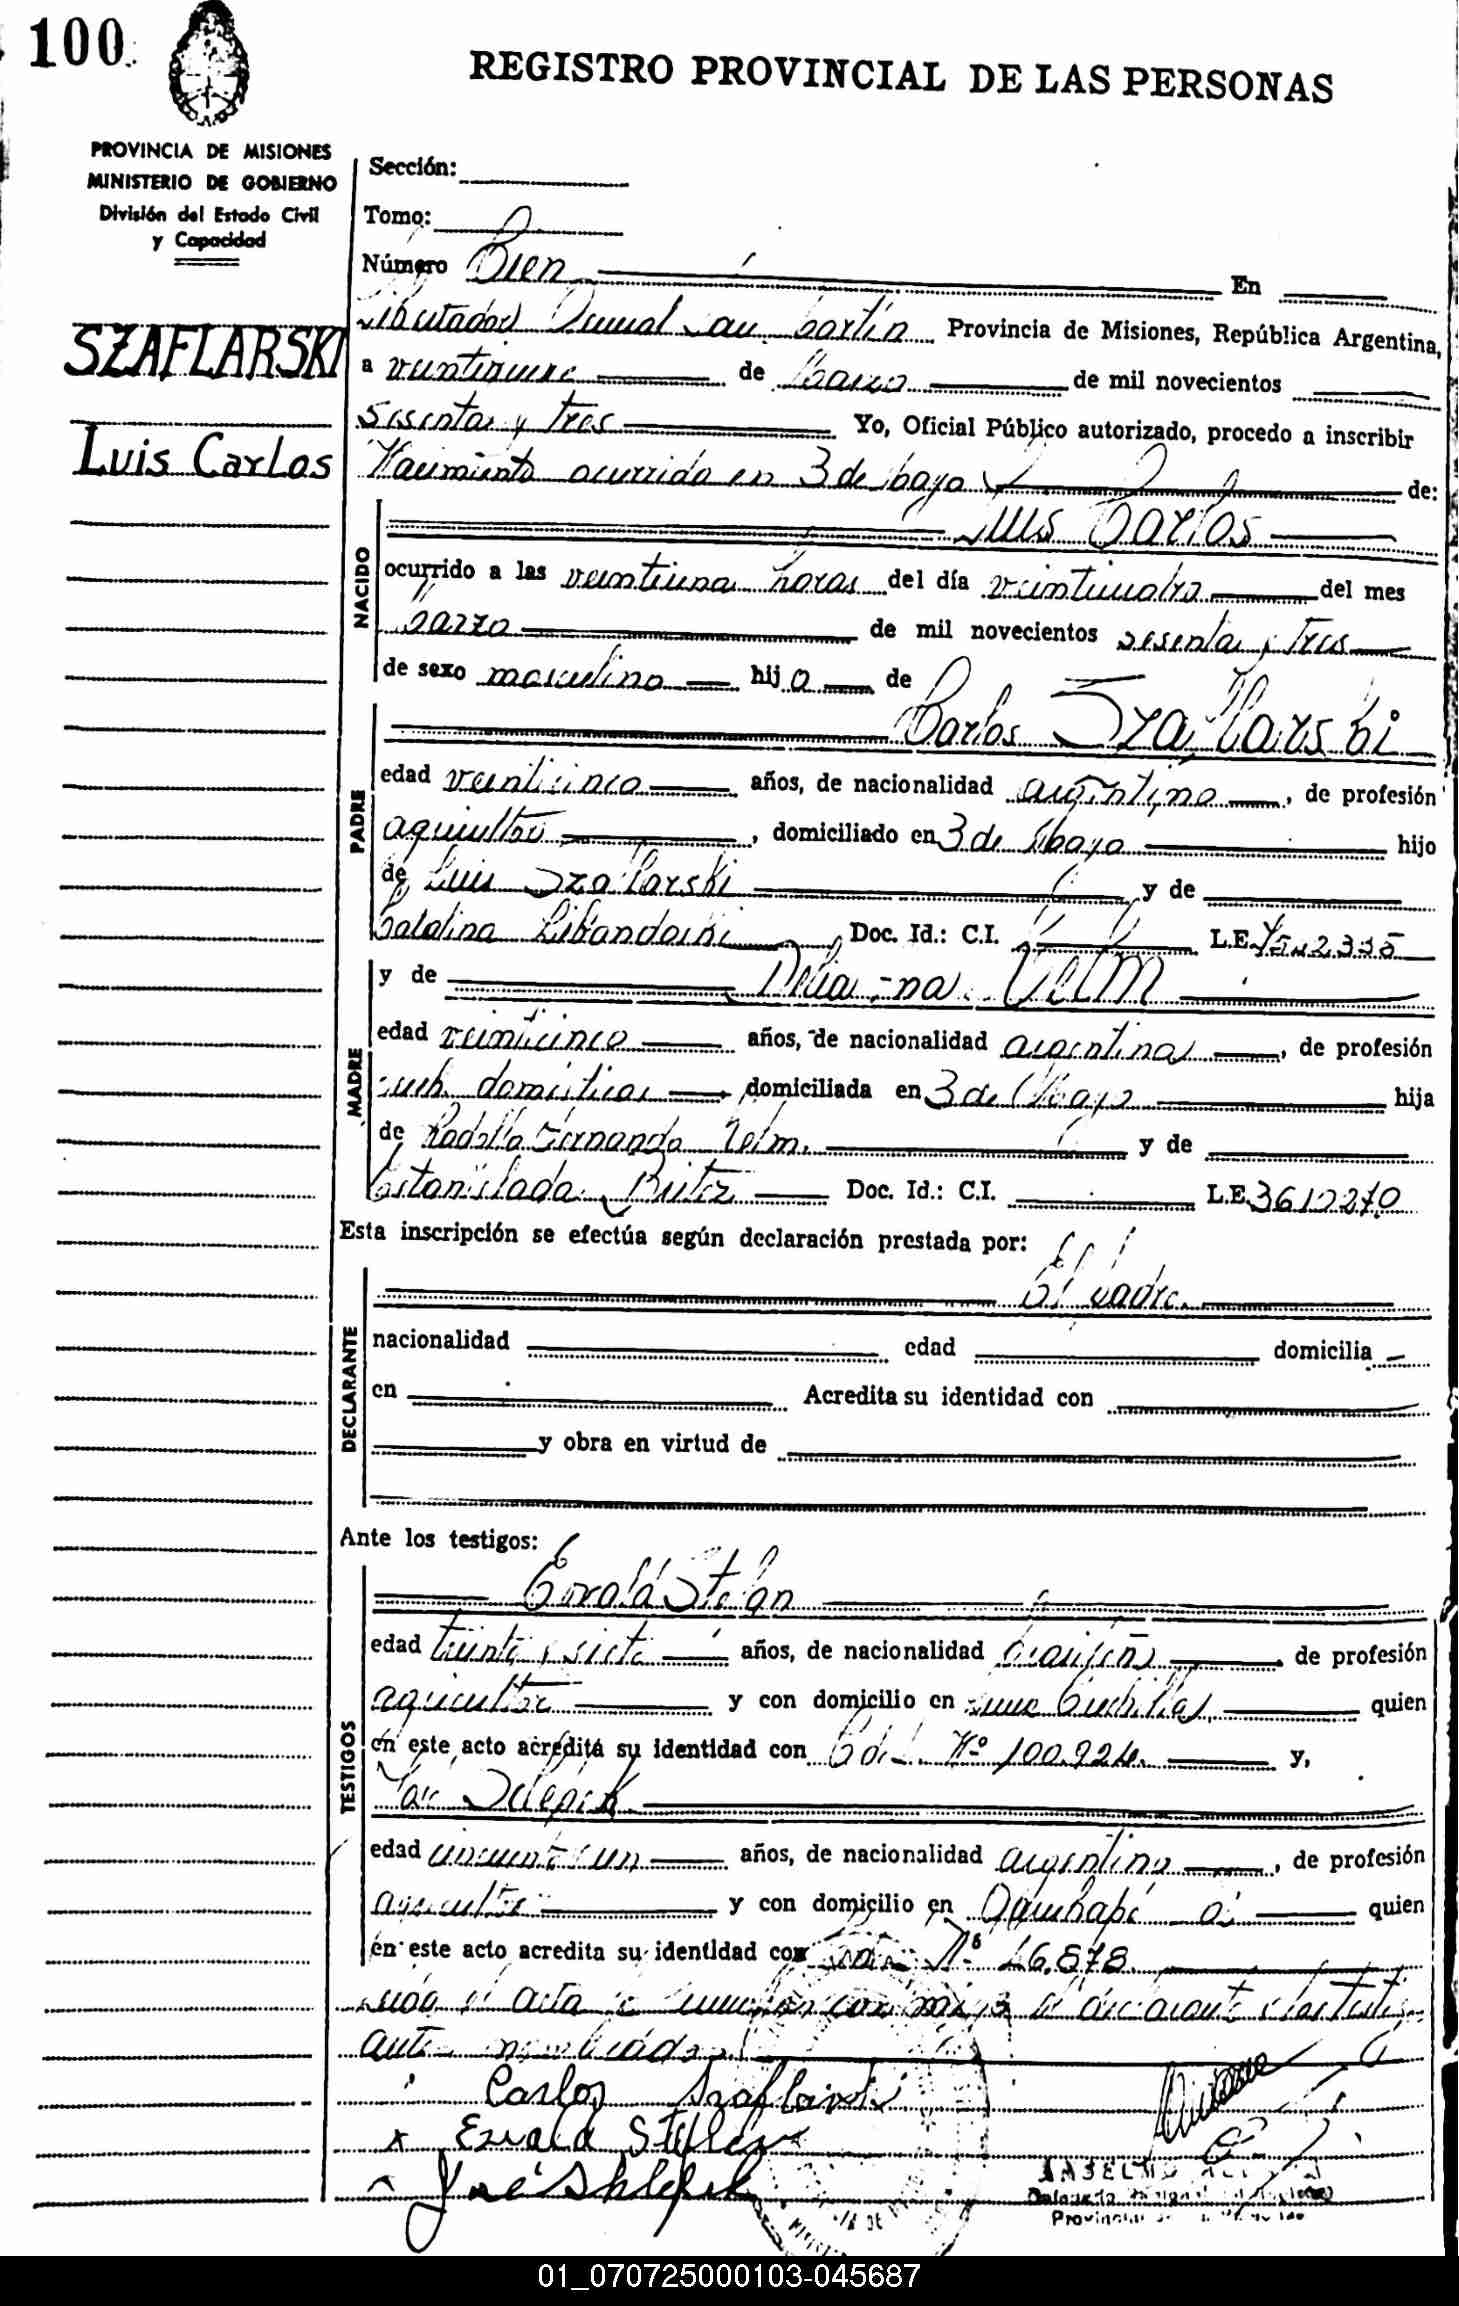 100
REGISTRO PROVINCIAL DE LAS PERSONAS
PROVINCIA DE MISIONES
MINISTERIO DE GOBIERNO
División del Estado Civil
y Capacidad
Sección:
Tomo:
Número Cien En
Libertador General San Martín Provincia de Misiones, República Argentina,
SZAFLARSKI
a veintinueve de Marzo de mil novecientos
sesenta y tres Yo, Oficial Público autorizado, procedo a inscribir
Luis Carlos
Nacimiento ocurrido en 3 de Mayo de:
NACIDO
Luis Carlos
ocurrido a las veintiuna horas del día veinticuatro del mes
Marzo de mil novecientos sesenta y tres
de sexo masculino hijo de
PADRE
Carlos Szaflarski
edad veinticinco años, de nacionalidad argentino, de profesión
agricultor, domiciliado en 3 de Mayo hijo
de Luis Szaflarski y de
Catalina Doc. Id.: C.I. L.E.
MADRE
y de Delia
edad veinticinco años, de nacionalidad argentina, de profesión
domésticos domiciliada en 3 de Mayo hija
de Rodolfo Fernando y de
Estanislada Doc. Id.: C.I. L.E.
Esta inscripción se efectúa según declaración prestada por:
DECLARANTE
El padre.
nacionalidad edad domicilia
en Acredita su identidad con
y obra en virtud de
Ante los testigos:
TESTIGOS
Ewald Stefan
edad treinta y siete años, de nacionalidad brasileño de profesión
agricultor y con domicilio en Cuchillas quien
en este acto acredita su identidad con Nº 100.924. y,
José
edad cincuenta y un años, de nacionalidad argentino, de profesión
agricultor y con domicilio en quien
en este acto acredita su identidad con Nº 46.878
el acta la conmigo el declarante y los testigos
antes
Carlos Szaflarski
x Ewald
José
Provincial
01_070725000103-045687